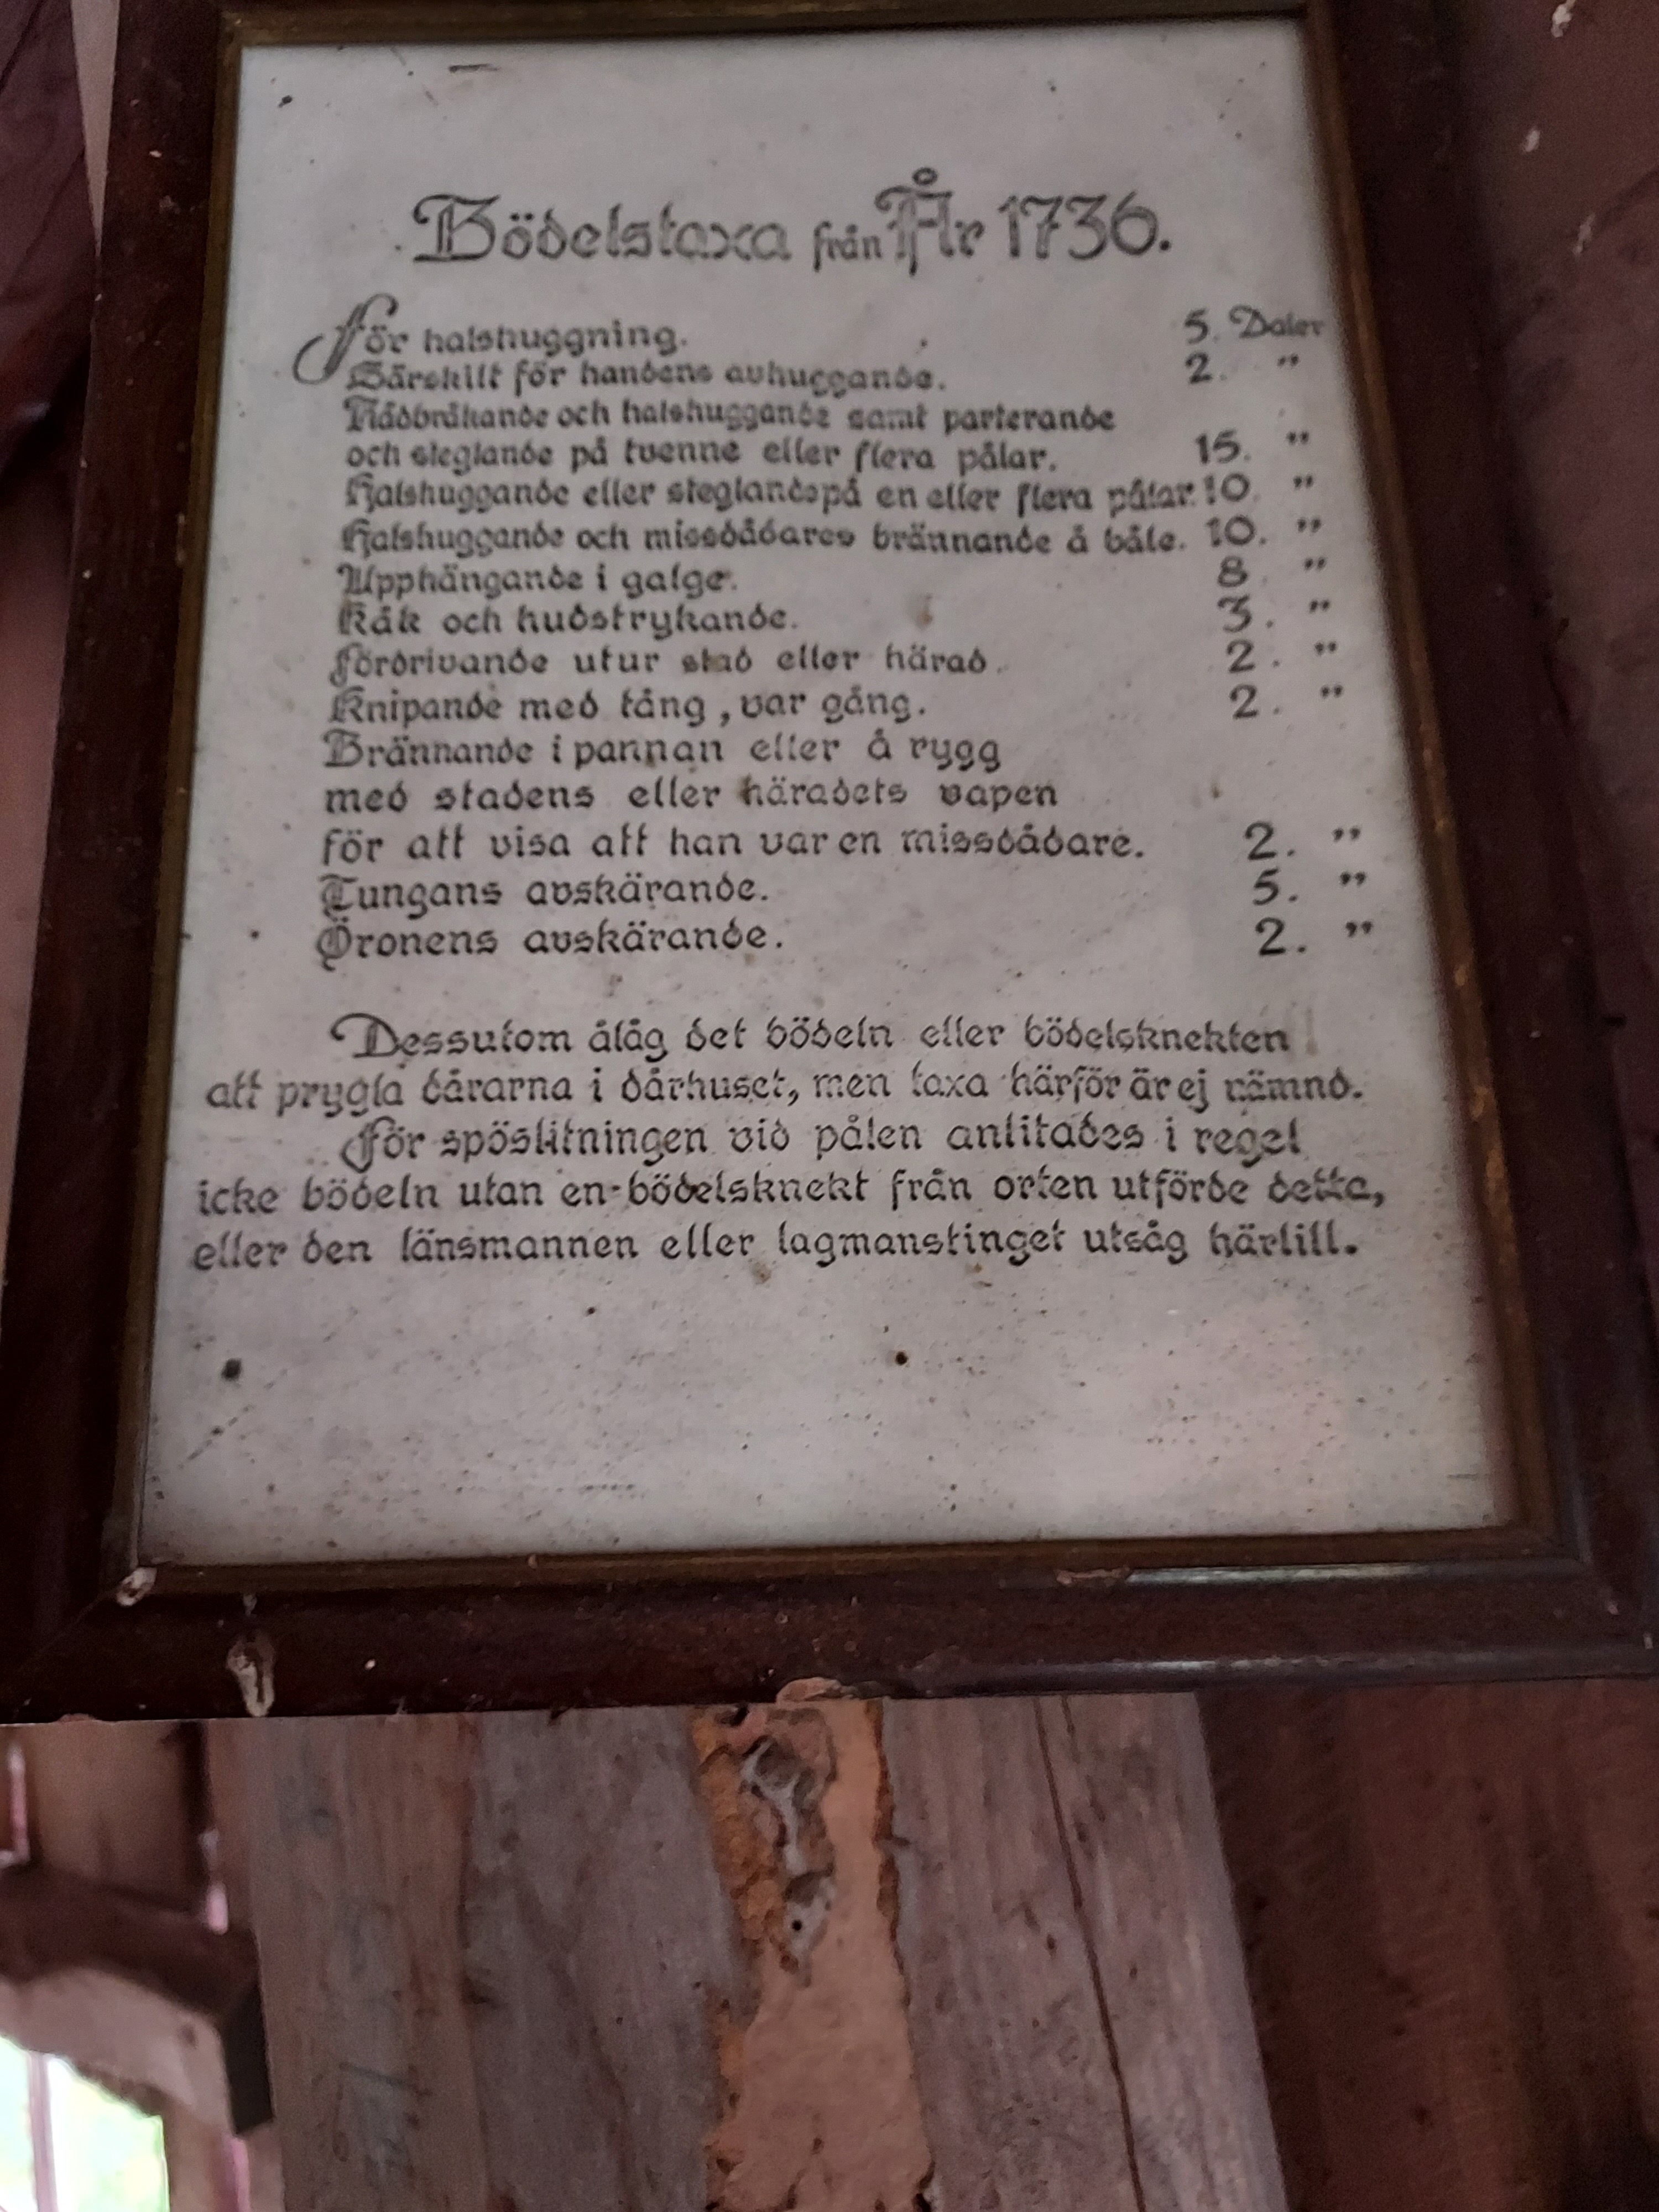 Bödelstaxa från År 1736.
För halshuggning. 5. Daler
Särskilt för handens avhuggande. 2. "
Rådbråkande och halshuggande samt parterande
och steglande på tvenne eller flera pålar. 15. "
Halshuggande eller steglande på en eller flera pålar. 10. "
Halshuggande och missdådares brännande å båle. 10. "
Upphängande i galge. 8. "
Kåk och hudstrykande. 3. "
Fördrivande utur stad eller härad. 2. "
Knipande med tång, var gång. 2. "
Brännande i pannan eller å rygg
med stadens eller häradets vapen
för att visa att han var en missdådare. 2. "
Tungans avskärande. 5. "
Öronens avskärande. 2. "
Dessutom ålåg det bödeln eller bödelsknekten
att prygla dårarna i dårhuset, men taxa härför är ej nämnd.
För spöslitningen vid pålen anlitades i regel
icke bödeln utan en bödelsknekt från orten utförde detta,
eller den länsmannen eller lagmanstinget utsåg härtill.